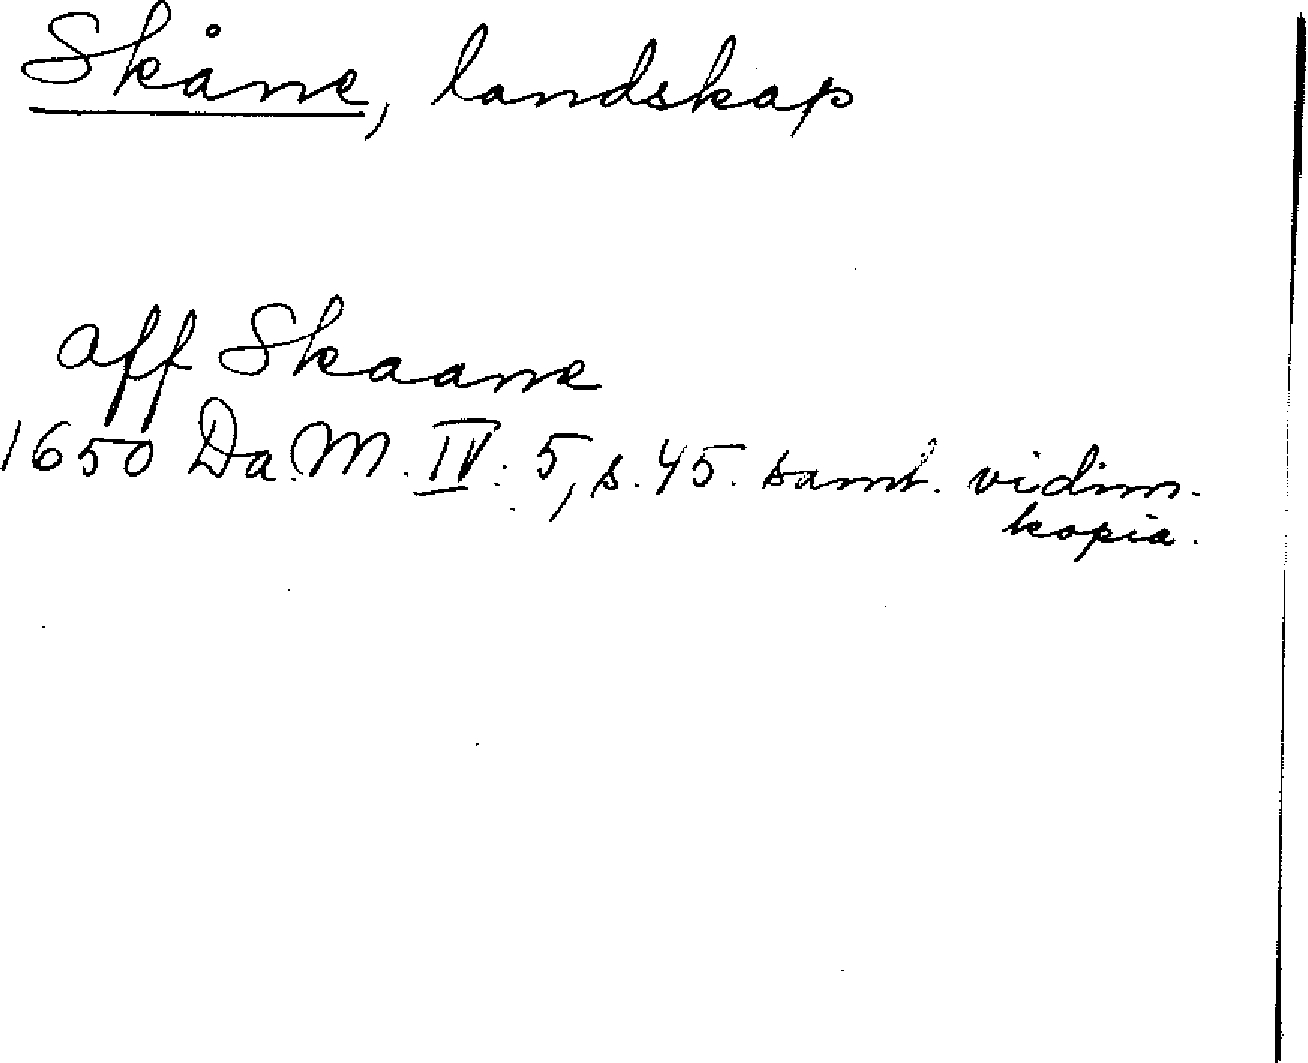 Skåne, landskap
aff Skaane
1650 Da.M. IV: 5, s. 45. samt. vidim.
kopia.